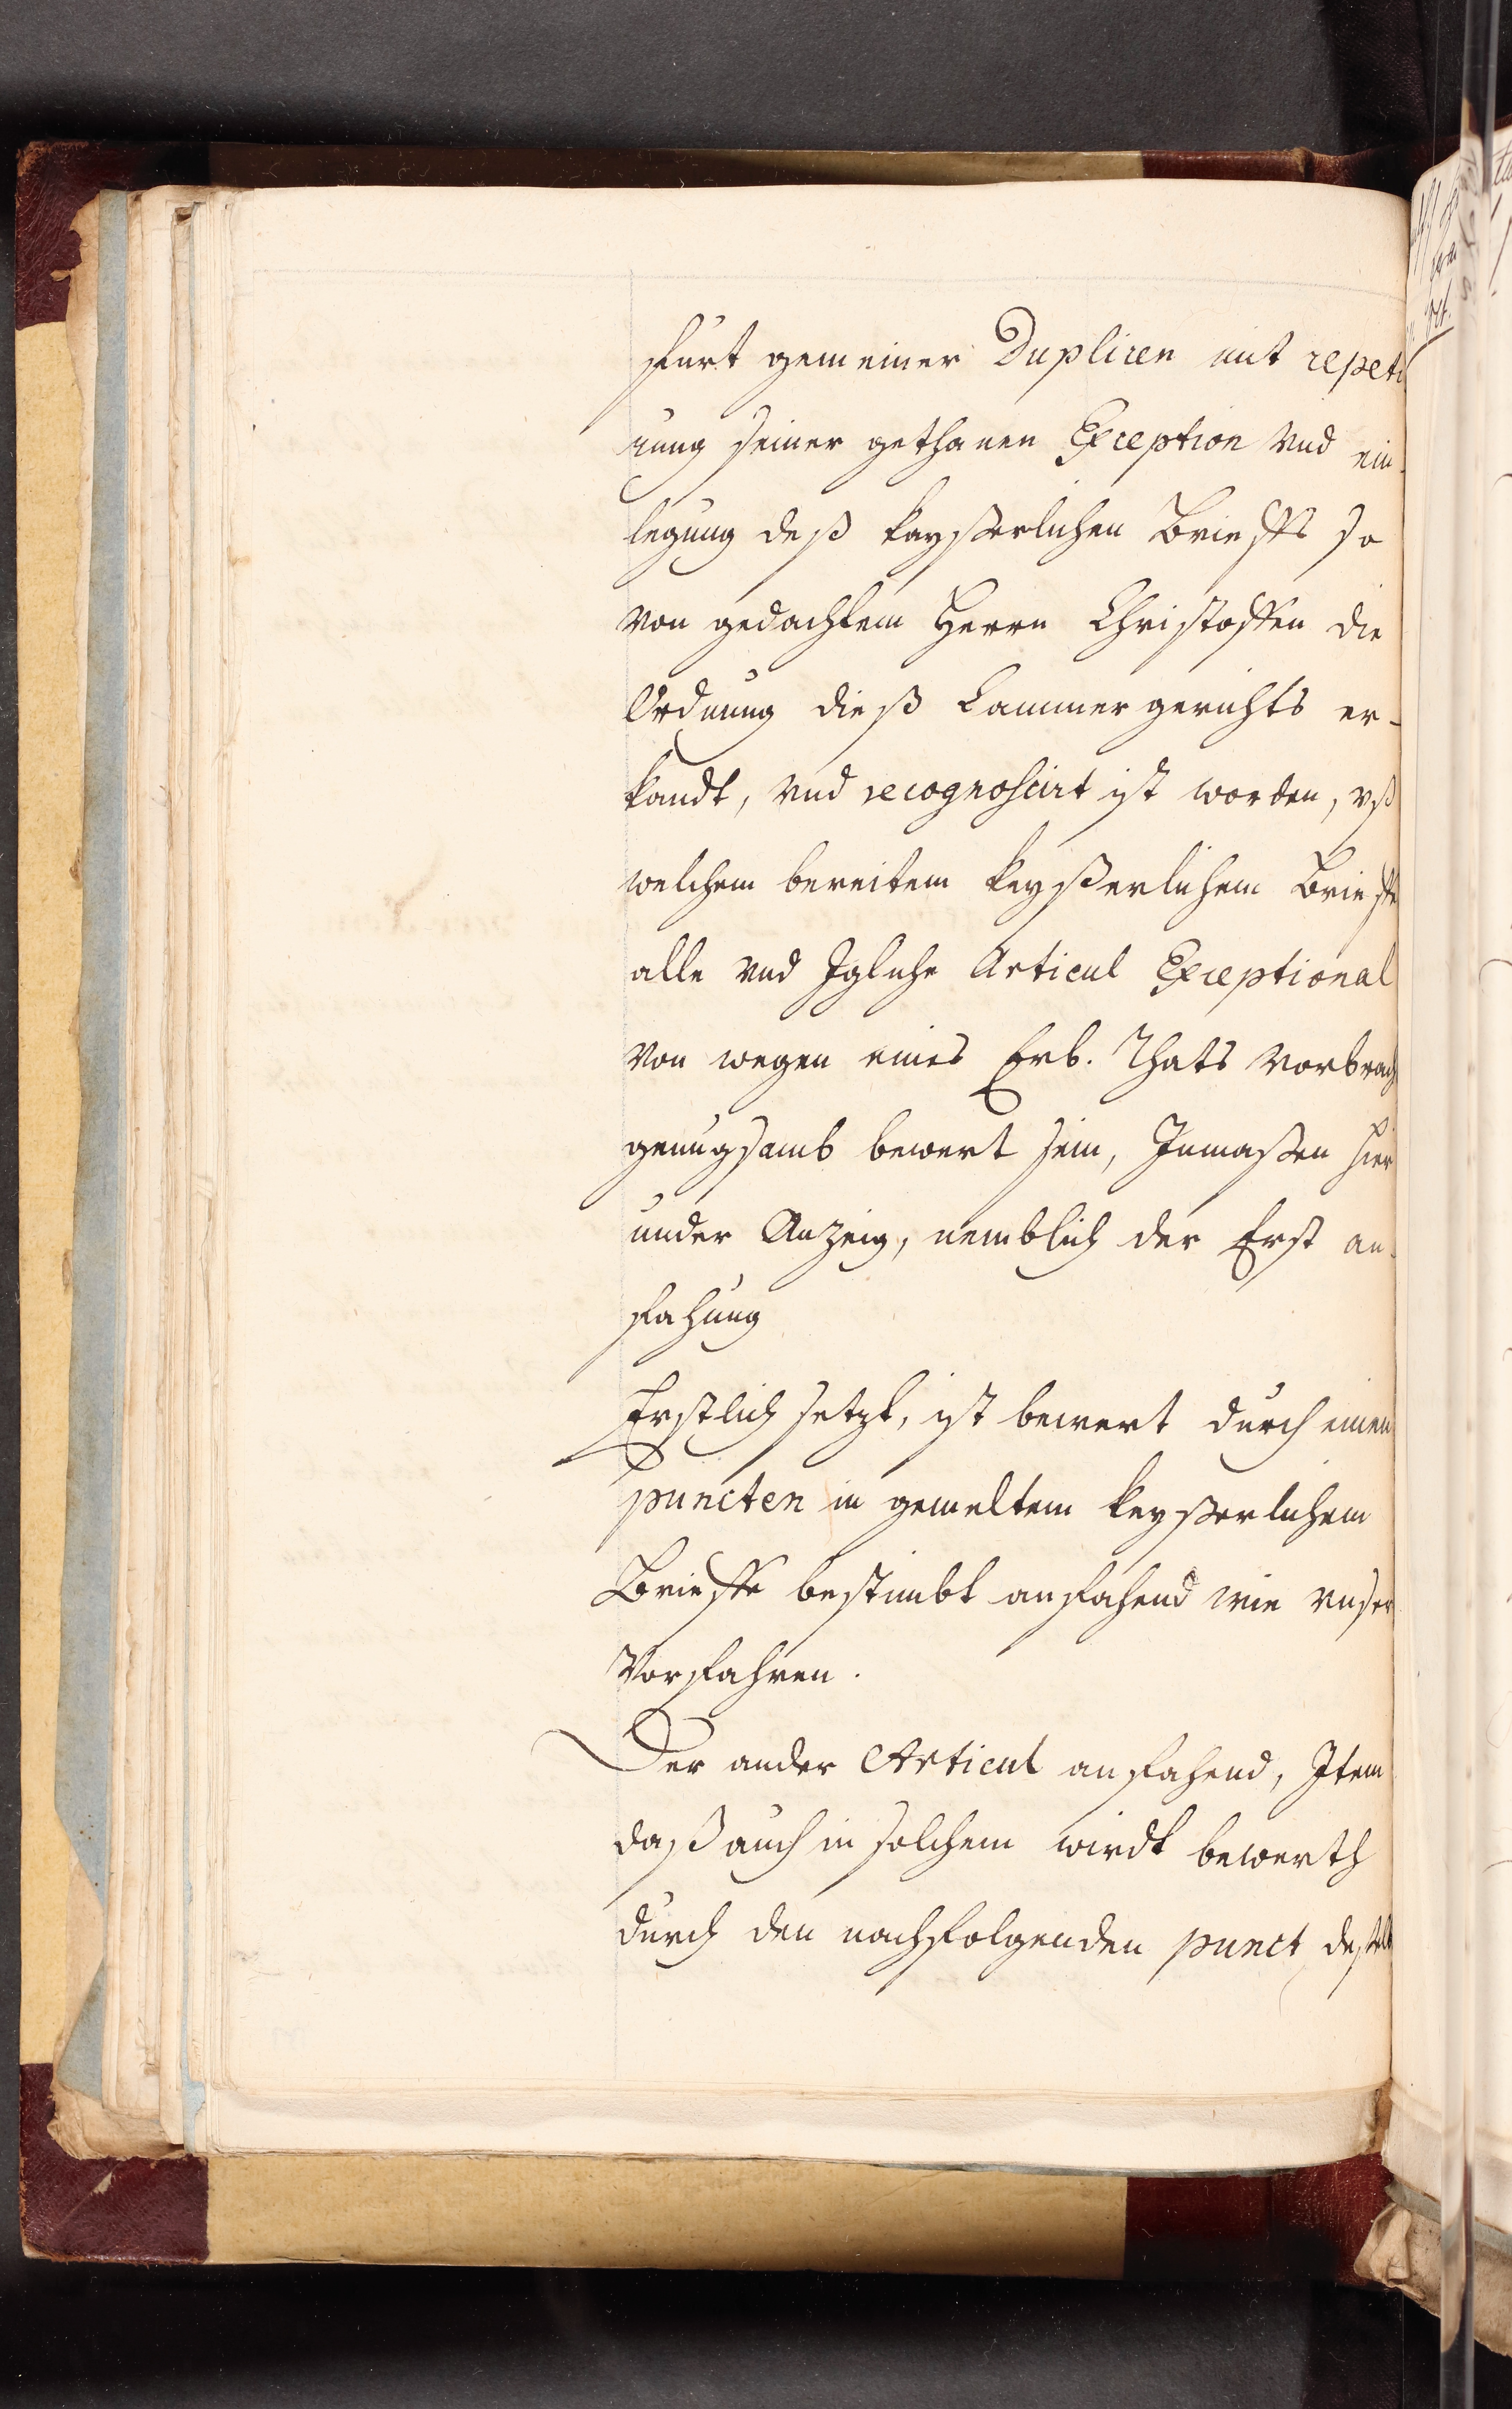 fürt gemeiner Dupliren mit repeti
rung seiner gethanen Exception vnd ein-
legung deß kayßerlichen Brieffs so
von gedachtem Herrn Christoffen die
Ordnung dieß Cammergerichts er-
kandt, vnd recognoscirt ist worden, vß
welchem bereitem keyßerlichem Brieffe
alle vnd Igliche Articul Exceptional
von wegen eines Erb. Thats vorbrach
genugsamb bewert sein, Inmaßen hier
under Anzeig, nemblich der Erst an-
fahung
Erstlich setzt, ist bewert durch einen
puncten in gemeltem keyßerlichem
Brieffe bestimbt anfahend wie vnser
Vorfahren.
Der ander Articul anfahend, Item
daß auch in solchem wirdt bewerth
durch den nachfolgenden punct